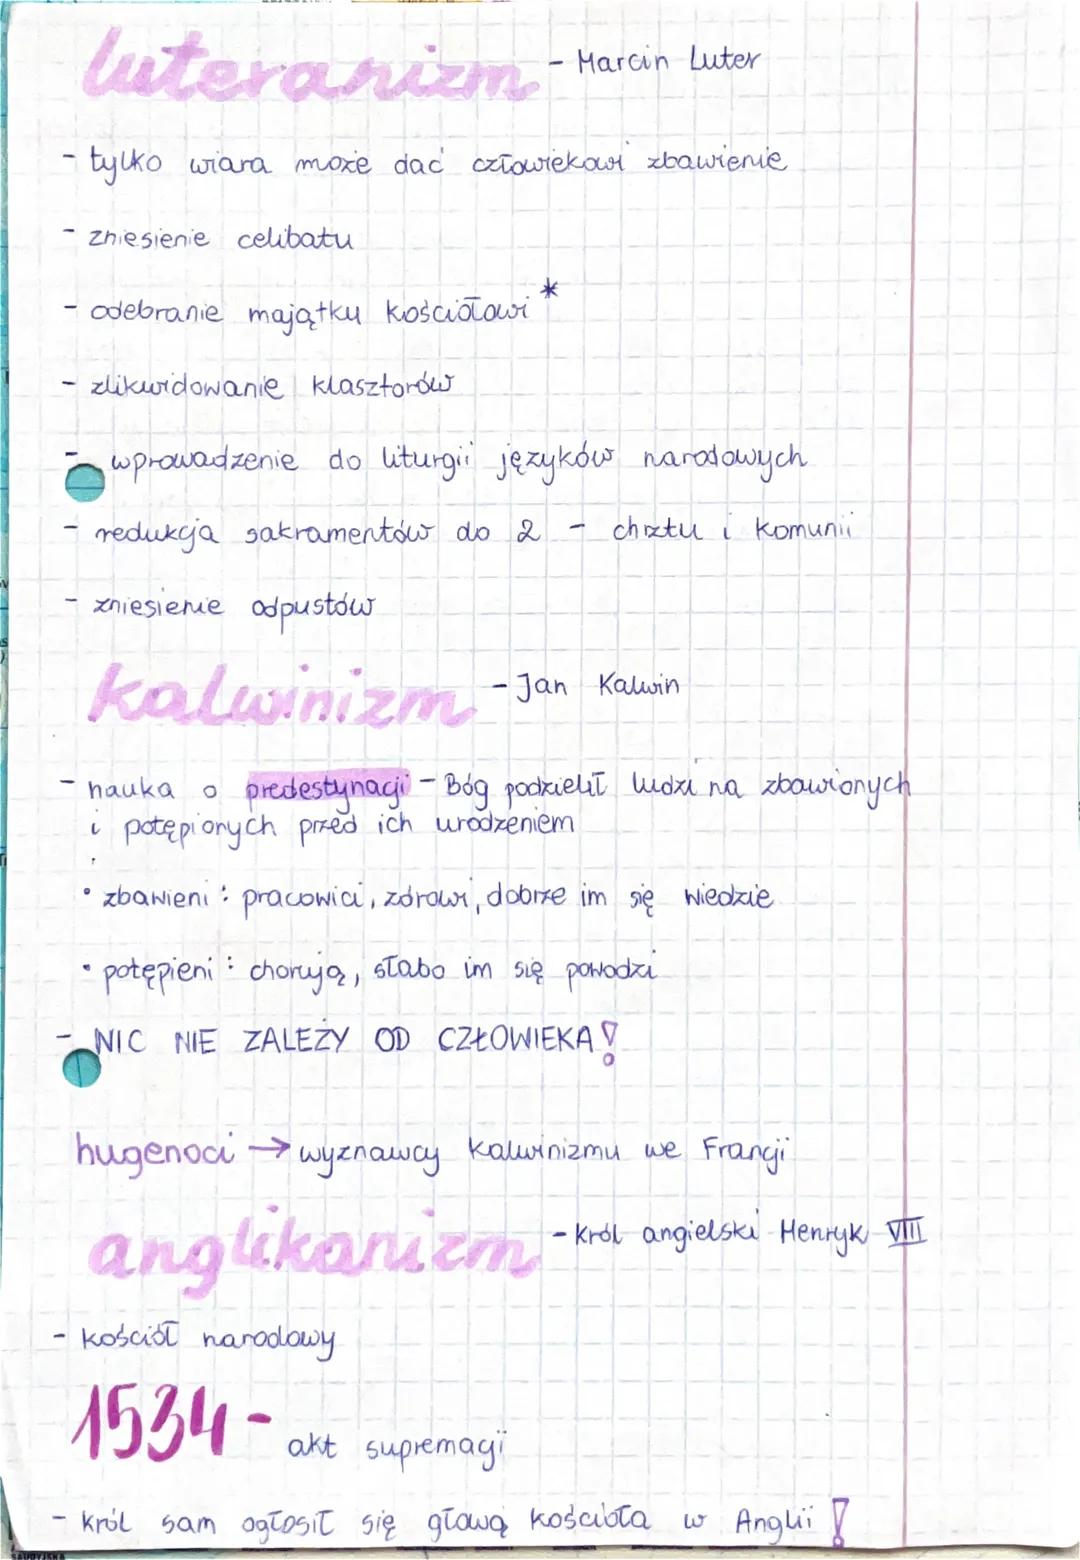 luteranizm - Marcin Luter
- tylko wiara może dać człowiekowi zbawienie
- zniesienie celibatu
- odebranie majątku kościołowi *
- zlikwidowanie klasztorów
- wprowadzenie do liturgii języków narodowych
- redukcja sakramentów do 2 - chrztu i komunii
- zniesienie odpustów
kalwinizm - Jan Kalwin
- nauka o predestynacji - Bóg podzielił ludzi na zbawionych
i potępionych przed ich urodzeniem
• zbawieni : pracowici, zdrowi, dobrze im się wiedzie
• potępieni : chorują, słabo im się powodzi
- NIC NIE ZALEŻY OD CZŁOWIEKA!
hugenoci → wyznawcy kalwinizmu we Francji
anglikanizm - król angielski Henryk VIII
- kościół narodowy
1534 - akt supremacji
- król sam ogłosił się głową kościoła w Anglii!
SAUDYJSKA